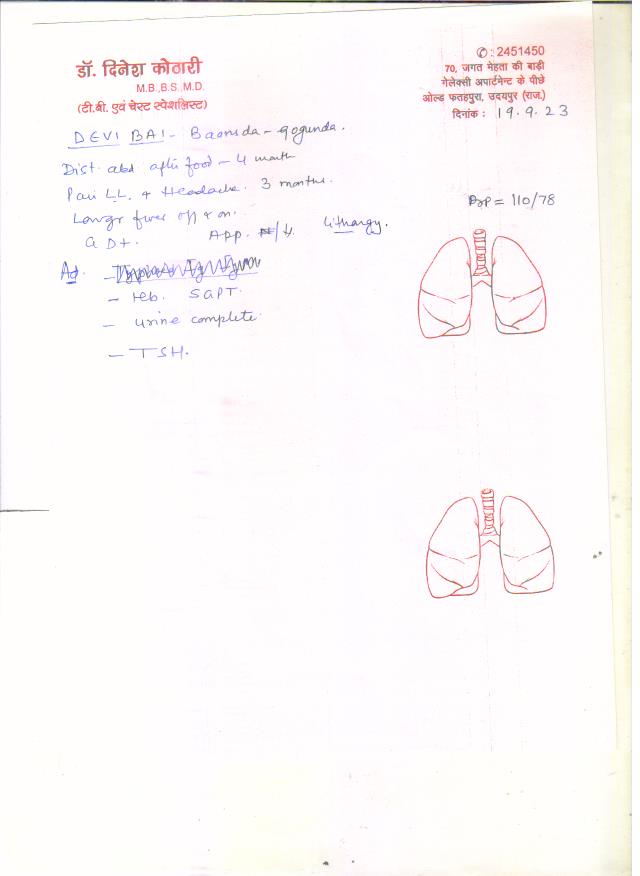 डॉ. दिनेश कोठारी
M.B.,B.S.,M.D.
(टी.बी. एवं चेस्ट स्पेशलिस्ट)
✆ : 2451450
70, जगत मेहता की बाड़ी
गेलेक्सी अपार्टमेन्ट के पीछे
ओल्ड फतहपुरा, उदयपुर (राज.)
दिनांक : 19.9.23
DEVI BAI - Baonsda - gogunda.
Dist. abd after food - 4 month
Pain L.L. & Headache. 3 months.
fever off & on.
APP. Lithargy.
BP = 110/78
Ad.
- Hb. SGPT.
- urine complete
- TSH.